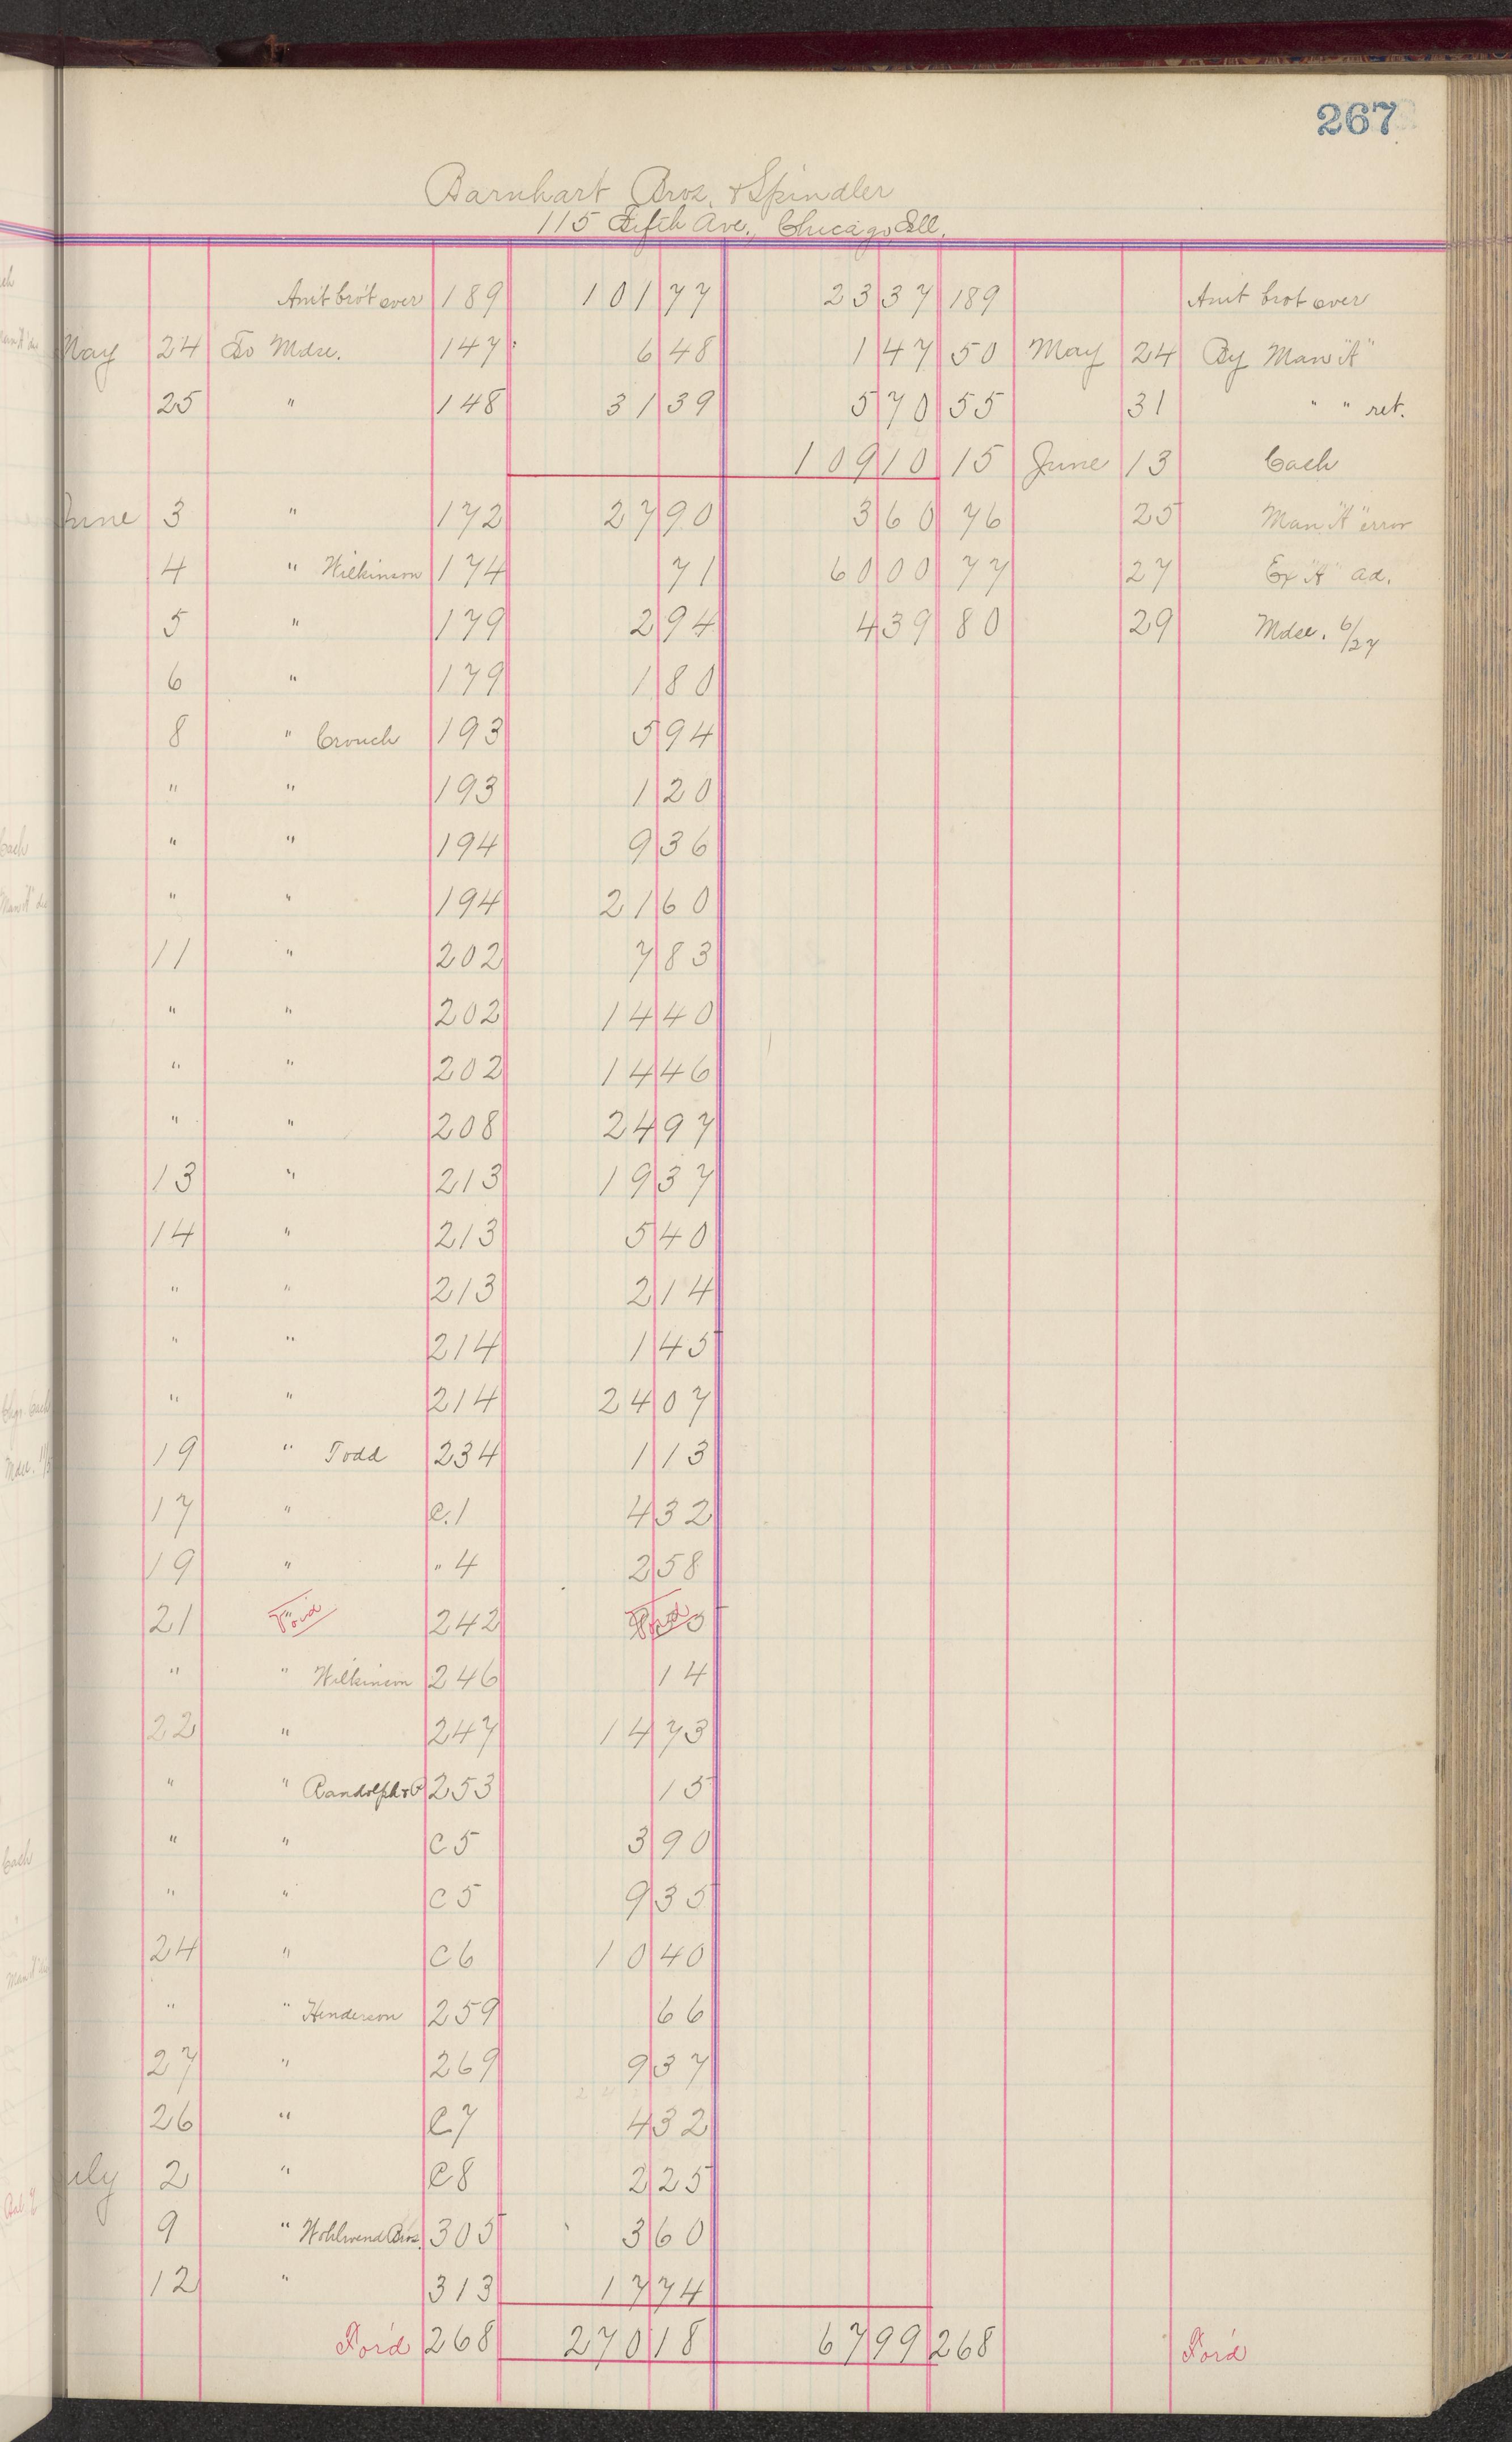 267
Barnhart Bros. & Spindler
115 Fifth Ave., Chicago, Ill.
Am't bro't over 189 101 77 23 37 189 Amt brot over
May 24 To Mdse. 147 6 48 1 47 50 May 24 By Man "A"
25 " 148 31 39 5 70 55 31 " " ret.
109 10 15 June 13 Cash
June 3 " 172 27 90 3 60 76 25 Man "A" error
4 " Wilkinson 174 71 60 00 77 27 Ex "A" ad.
5 " 179 2 94 4 39 80 29 Mdse. 6/27
6 " 179 1 80
8 " Crouch 193 5 94
" " 193 1 20
" " 194 9 36
" " 194 21 60
11 " 202 7 83
" " 202 14 40
" " 202 14 46
" " 208 24 97
13 " 213 19 37
14 " 213 5 40
" " 213 2 14
" " 214 1 45
" " 214 24 07
19 " Todd 234 1 13
17 " C.1 4 32
19 " " 4 2 58
21 " Void 242 Void
" " Wilkinson 246 14
22 " 247 14 73
" " Randolph & 253 15
" " C5 3 90
" " C5 9 35
24 " C6 10 40
" " Henderson 259 66
27 " 269 9 37
26 " C7 4 32
July 2 " C8 2 25
9 " Wohlwend Bros. 305 3 60
12 " 313 17 74
For'd 268 270 18 67 99 268 For'd